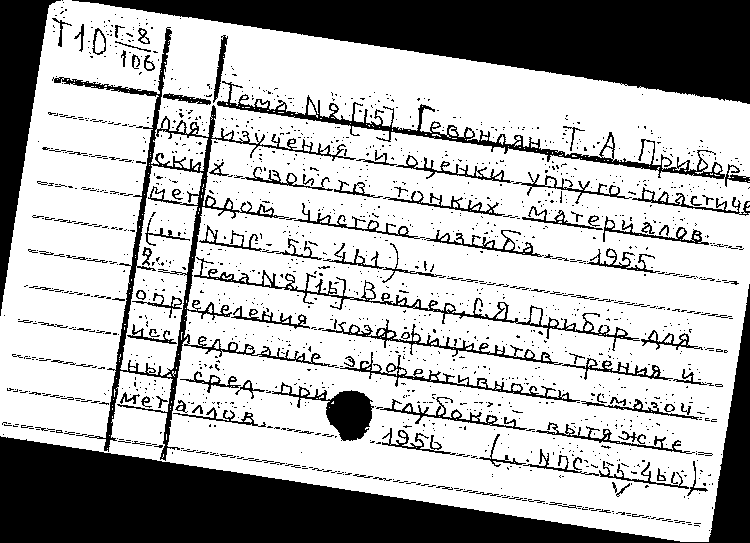 Т10 Г-8/106
Тема №2 [15] Гевондян, Т. А Прибор
для изучения и оценки упруго-пластиче
ских свойств тонких материалов
методом чистого изгиба. 1955
(... N ПС-55-461) "
2... Тема №2 [15] Вейлер, С.Я. Прибор для
определения коэффициентов трения и
исследование эффективности смазоч-
ных сред при глубокой вытяжке
металлов. 1956 (... N ПС-55-460).